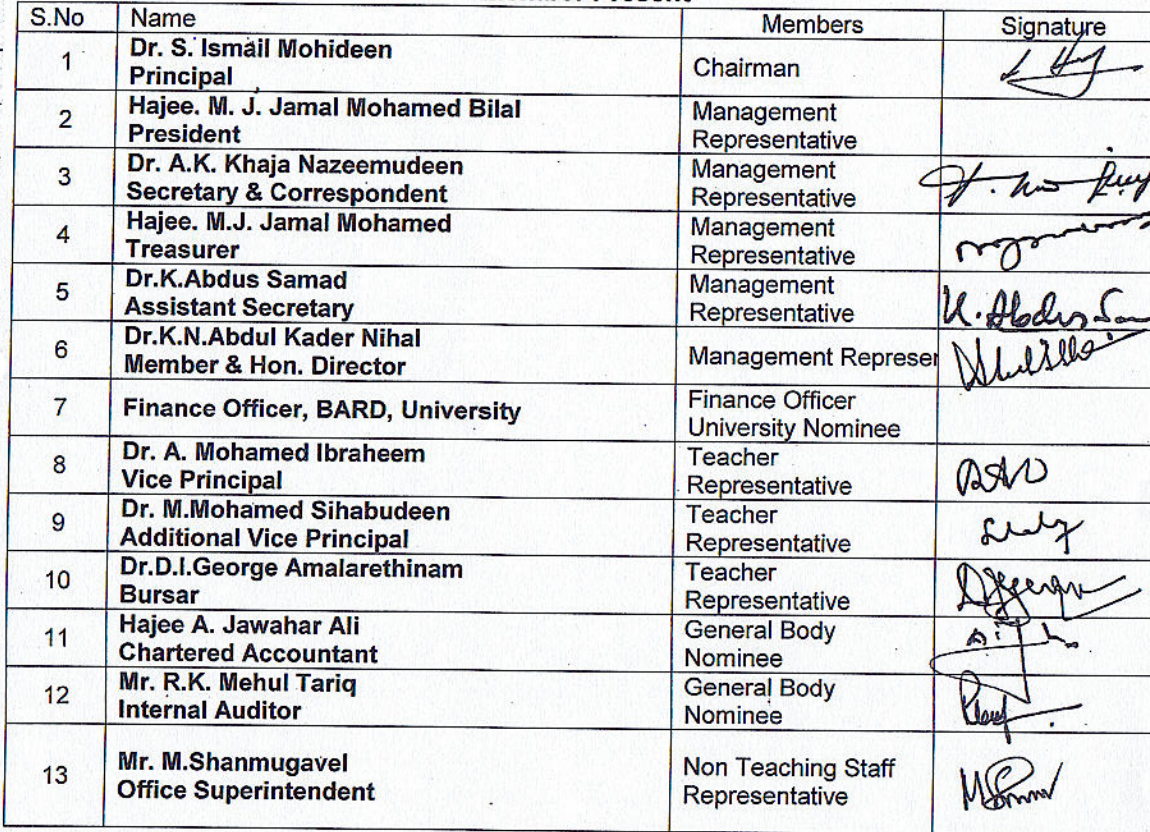 S.No Name Members Signature
1 Dr. S. Ismail Mohideen
Principal Chairman
2 Hajee. M. J. Jamal Mohamed Bilal
President Management
Representative
3 Dr. A.K. Khaja Nazeemudeen
Secretary & Correspondent Management
Representative
4 Hajee. M.J. Jamal Mohamed
Treasurer Management
Representative
5 Dr.K.Abdus Samad
Assistant Secretary Management
Representative K. Abdus Sam
6 Dr.K.N.Abdul Kader Nihal
Member & Hon. Director Management Represer
7 Finance Officer, BARD, University Finance Officer
University Nominee
8 Dr. A. Mohamed Ibraheem
Vice Principal Teacher
Representative
9 Dr. M.Mohamed Sihabudeen
Additional Vice Principal Teacher
Representative
10 Dr.D.I.George Amalarethinam
Bursar Teacher
Representative
11 Hajee A. Jawahar Ali
Chartered Accountant General Body
Nominee
12 Mr. R.K. Mehul Tariq
Internal Auditor General Body
Nominee
13 Mr. M.Shanmugavel
Office Superintendent Non Teaching Staff
Representative